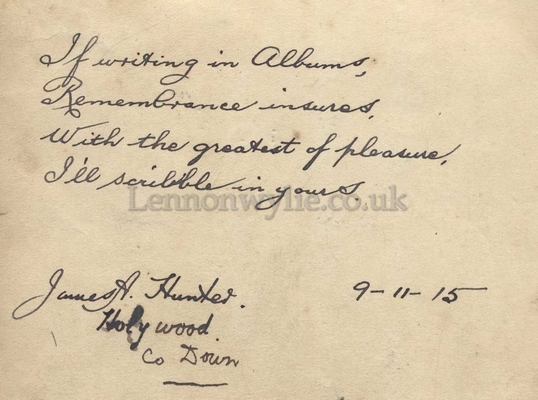 If writing in Albums,
Remembrance insures,
With the greatest of pleasure,
I'll scribble in yours.
Lennonwylie.co.uk
James A. Hunter.
9-11-15
Holywood
Co Down